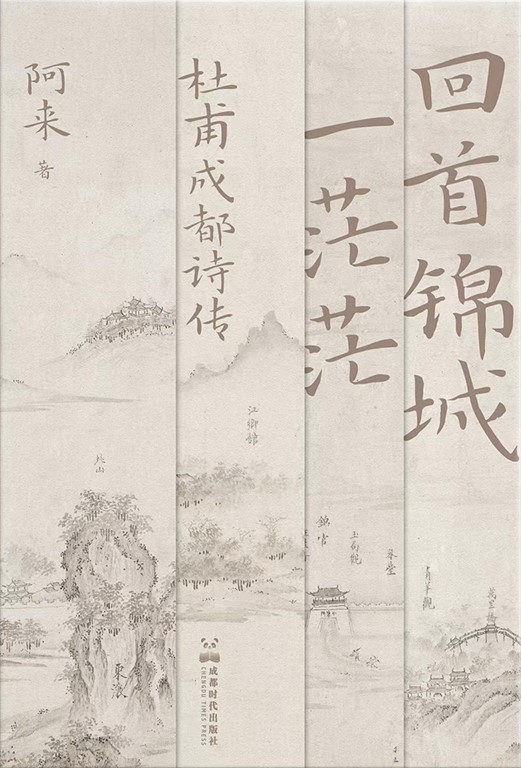 回首锦城
一茫茫
杜甫成都诗传
阿来 著
江乡馆
北山
锦官
玉局观
草堂
青羊观
万里桥
成都时代出版社
CHENGDU TIMES PRESS